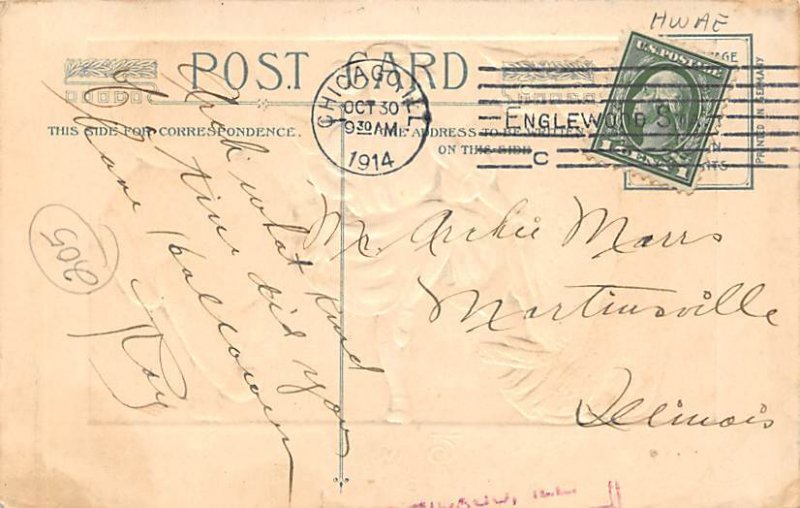 HWAE
POST CARD
THIS SIDE FOR CORRESPONDENCE.
ADDRESS TO BE WRITTEN
ON THIS SIDE
CHICAGO, ILL.
OCT 30
930 AM
1914
ENGLEWOOD S
C
U.S. POSTAGE
1 CENT 1
PRINTED IN GERMANY
Arch what kind
time did you
have Halloween
Ray
205
Mr. Archie Marrs
Martinsville
Illinois